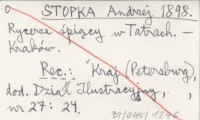 o STOPKA Andrzej 1898.
Rycerze śpiący w Tatrach. –
Kraków.
Rec.: Kraj (Petersburg),
dod. Dział Ilustracyjny, ,
nr 27: 24.